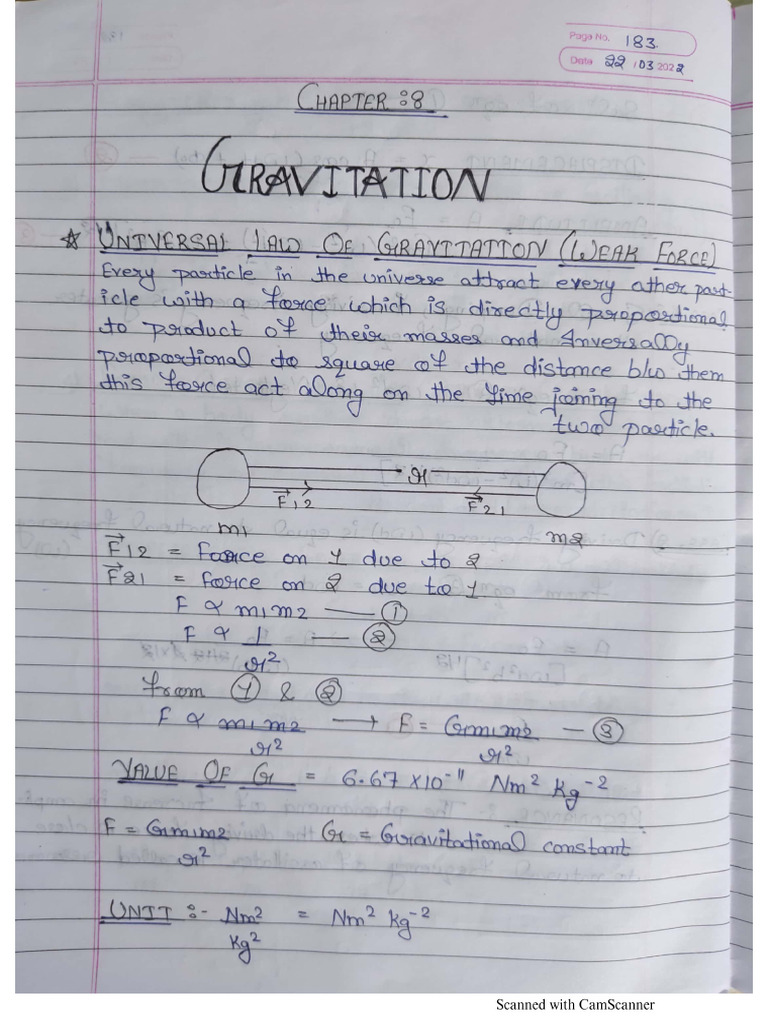 Page No. 183
Date 22 / 03 2022
CHAPTER :8
GRAVITATION
* UNIVERSAL LAW OF GRAVITATION (WEAK FORCE)
Every particle in the universe attract every other part-
icle with a force which is directly proportional
to product of their masses and Inversally
proportional to square of the distance b/w them
this force act along on the line joining to the
two particle.
r
F⃗12 F⃗21
m1 m2
F⃗12 = Force on 1 due to 2
F⃗21 = force on 2 due to 1
F ∝ m1m2 — ①
F ∝ 1/r² — ②
from ① & ②
F ∝ m1m2/r² → F = Gm1m2/r² — ③
VALUE OF G = 6.67 ×10⁻¹¹ Nm² Kg⁻²
F = Gm1m2/r² G = Gravitational constant
UNIT :- Nm²/Kg² = Nm² Kg⁻²
Scanned with CamScanner